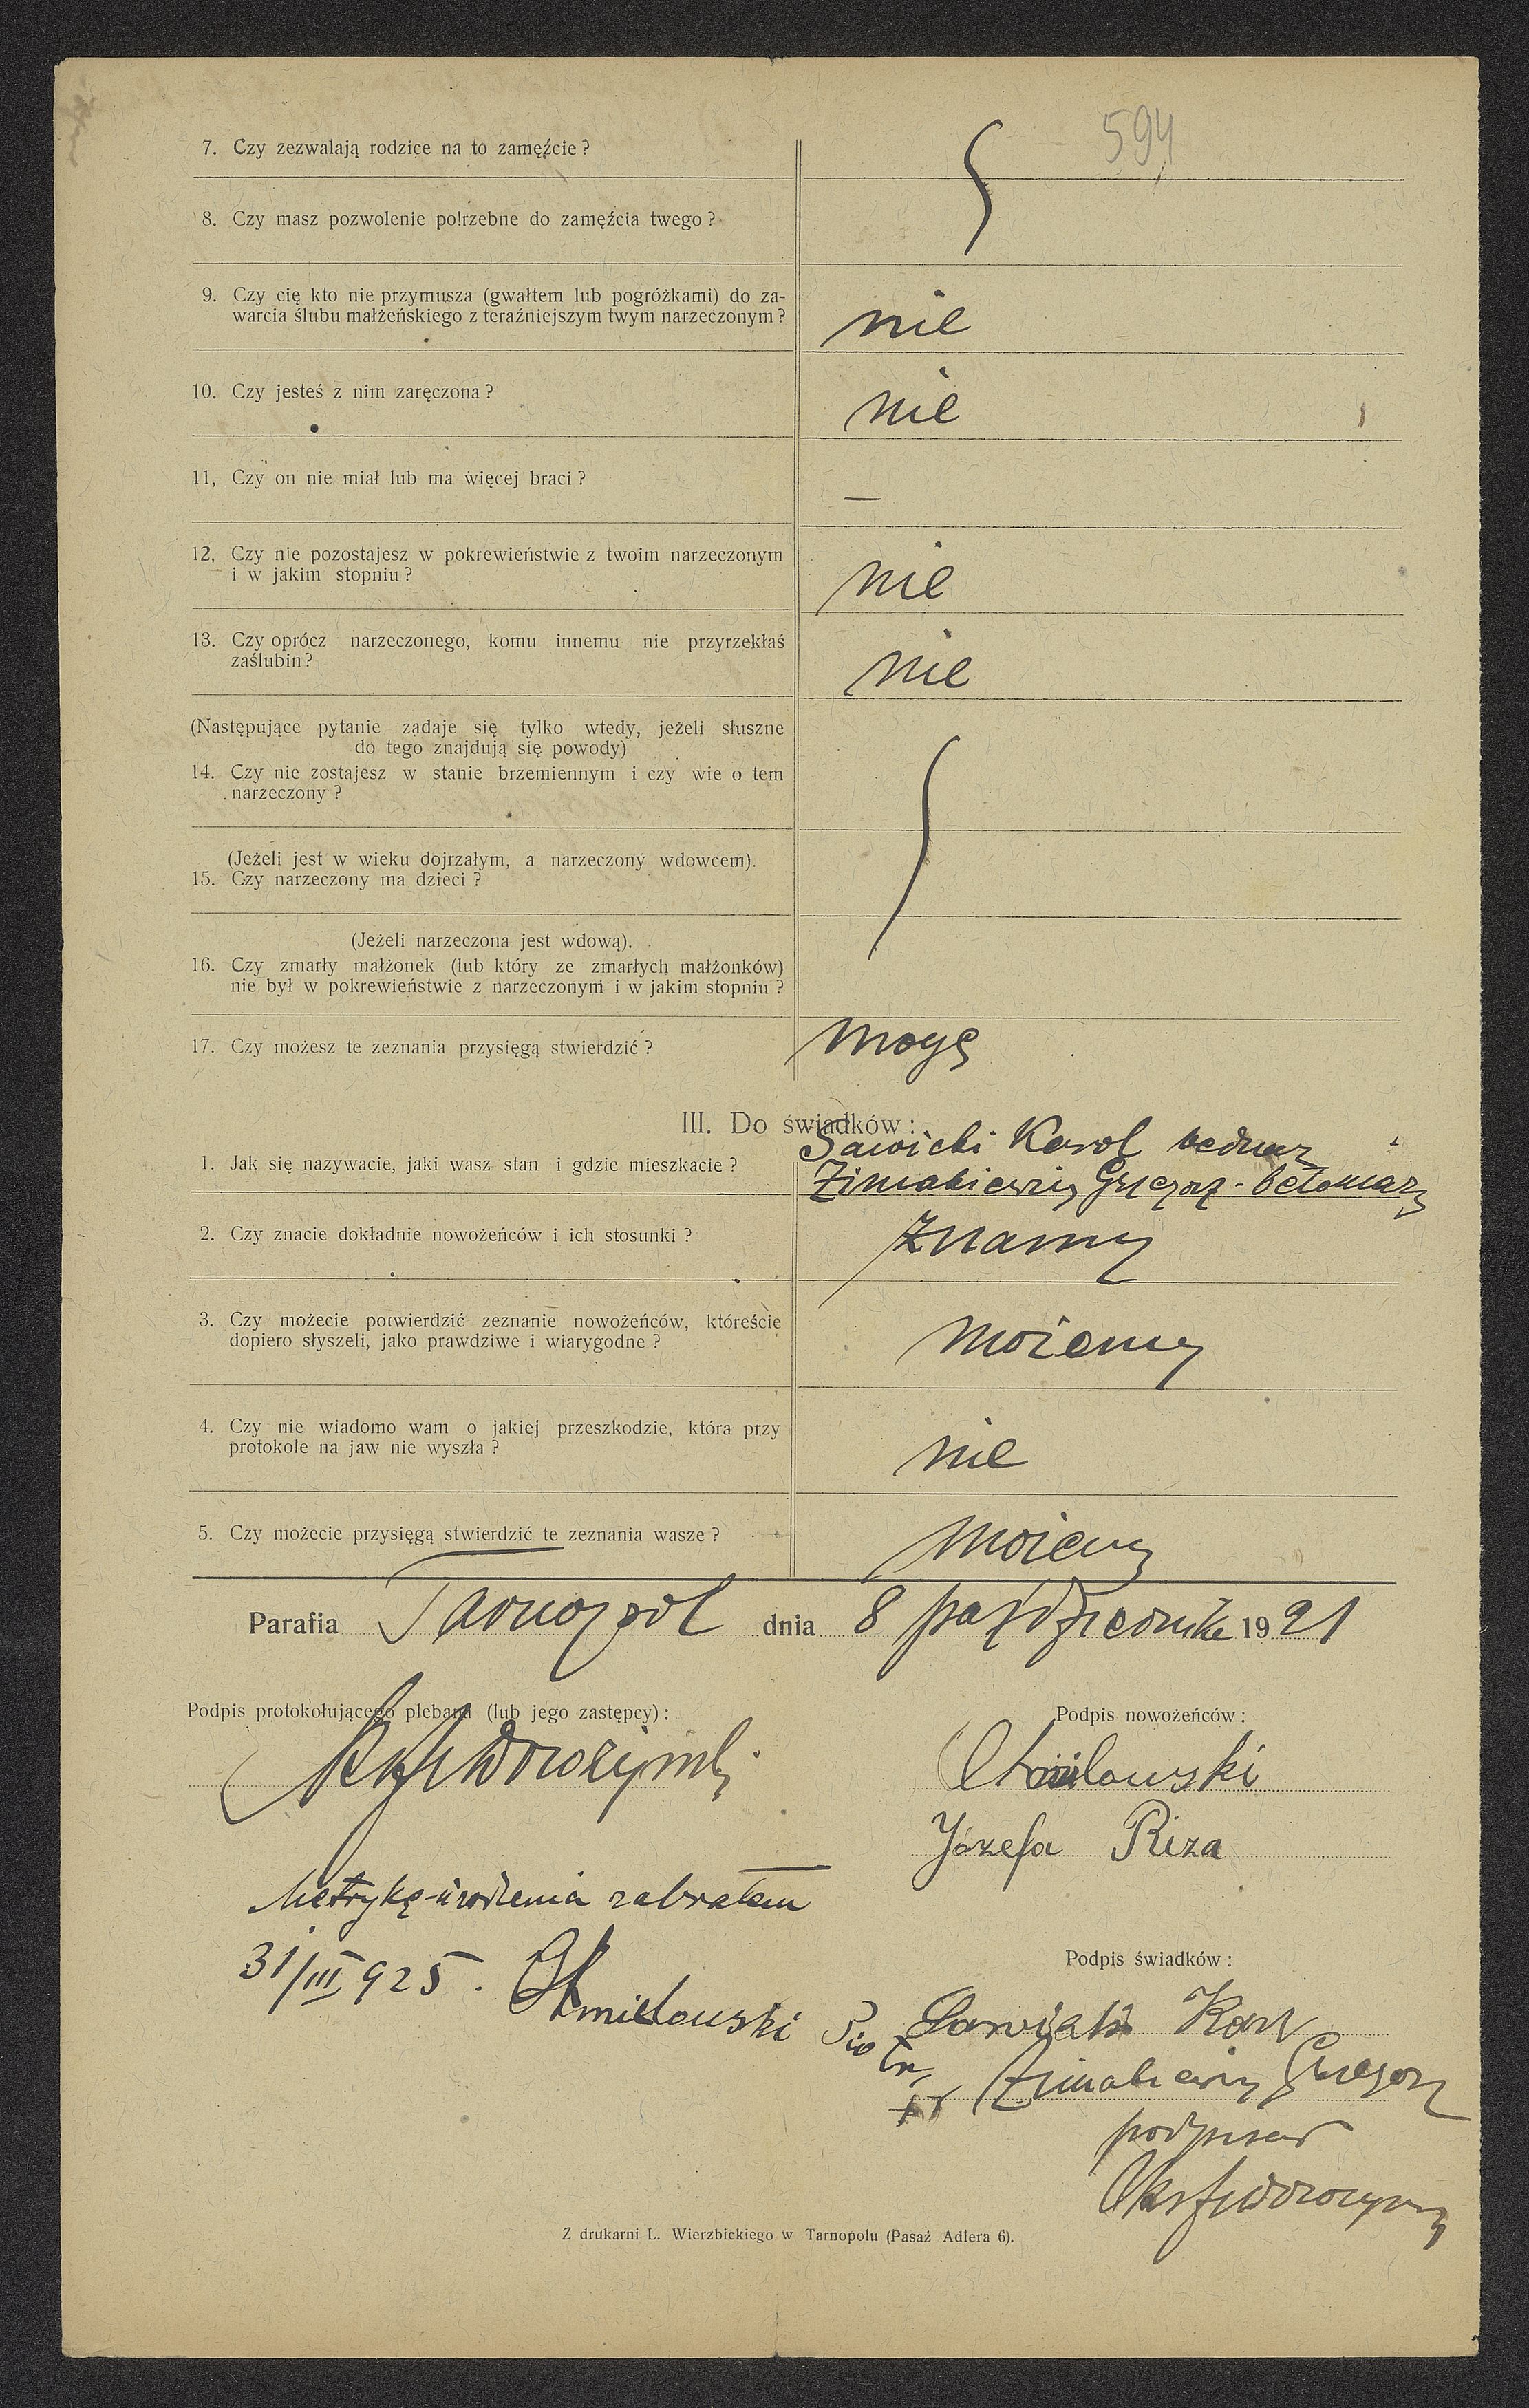 594
7. Czy zezwalają rodzice na to zamęźcie?
8. Czy masz pozwolenie potrzebne do zamęźcia twego?
9. Czy cię kto nie przymusza (gwałtem lub pogróżkami) do za-
warcia ślubu małżeńskiego z teraźniejszym twym narzeczonym?
nie
10. Czy jesteś z nim zaręczona?
nie
11, Czy on nie miał lub ma więcej braci?
—
12, Czy nie pozostajesz w pokrewieństwie z twoim narzeczonym
i w jakim stopniu?
nie
13. Czy oprócz narzeczonego, komu innemu nie przyrzekłaś
zaślubin?
nie
(Następujące pytanie zadaje się tylko wtedy, jeżeli słuszne
do tego znajdują się powody)
14. Czy nie zostajesz w stanie brzemiennym i czy wie o tem
narzeczony?
(Jeżeli jest w wieku dojrzałym, a narzeczony wdowcem).
15. Czy narzeczony ma dzieci?
(Jeżeli narzeczona jest wdową).
16. Czy zmarły małżonek (lub który ze zmarłych małżonków)
nie był w pokrewieństwie z narzeczonym i w jakim stopniu?
17. Czy możesz te zeznania przysięgą stwierdzić?
mogę
III. Do świadków:
1. Jak się nazywacie, jaki wasz stan i gdzie mieszkacie?
Sawicki Karol bednarz
Grzegorz -
2. Czy znacie dokładnie nowożeńców i ich stosunki?
Znamy
3. Czy możecie potwierdzić zeznanie nowożeńców, któreście
dopiero słyszeli, jako prawdziwe i wiarygodne?
możemy
4. Czy nie wiadomo wam o jakiej przeszkodzie, która przy
protokole na jaw nie wyszła?
nie
5. Czy możecie przysięgą stwierdzić te zeznania wasze?
możemy
Parafia Tarnopol dnia 8 października 1921
Podpis protokołującego plebana (lub jego zastępcy):
Podpis nowożeńców:
Chmilowski
Józefa Riza
Metrykę urodzenia zabrałem
31/III 925. Chmielowski Piotr
Podpis świadków:
Sawicki Karol
Grzegorz
podpisał
Z drukarni L. Wierzbickiego w Tarnopolu (Pasaż Adlera 6).